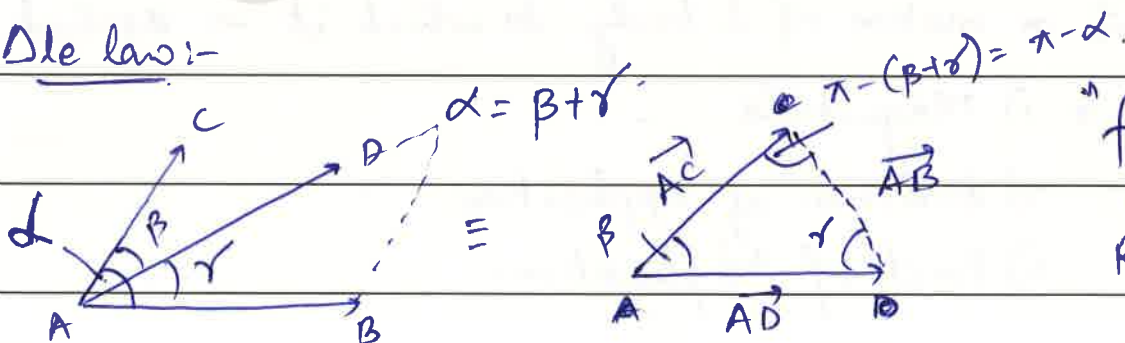 Δle law:-
C
D
α = β+γ
α
β
γ
A
B
≡
π-(β+γ) = π-α.
AC
AB
β
γ
A
D
AD
"f